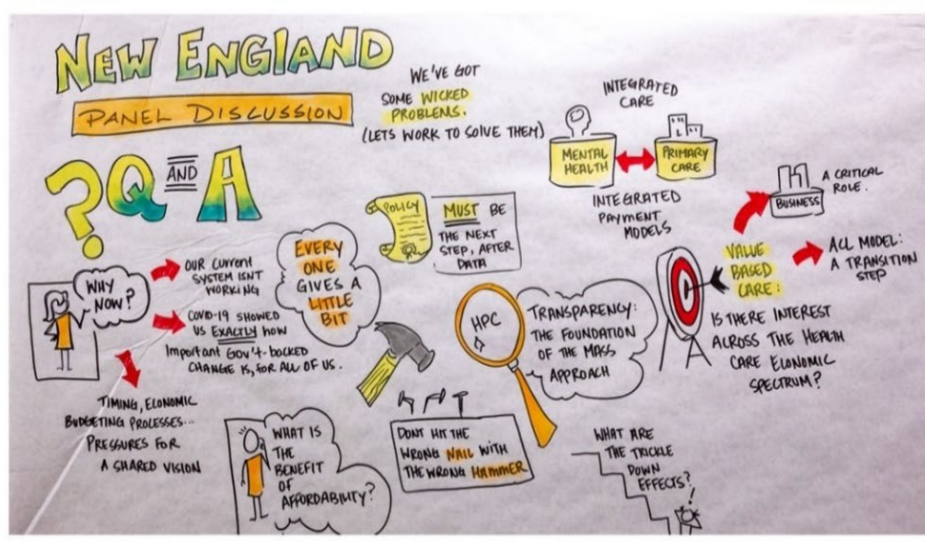 NEW ENGLAND
PANEL DISCUSSION
? Q AND A
WE'VE GOT
SOME WICKED
PROBLEMS.
(LETS WORK TO SOLVE THEM)
INTEGRATED
CARE
MENTAL
HEALTH
PRIMARY
CARE
INTEGRATED
PAYMENT
MODELS
BUSINESS
A CRITICAL
ROLE.
VALUE
BASED
CARE:
ACL MODEL:
A TRANSITION
STEP
IS THERE INTEREST
ACROSS THE HEALTH
CARE ECONOMIC
SPECTRUM?
POLICY
MUST BE
THE NEXT
STEP, AFTER
DATA
WHY
NOW?
OUR CURRENT
SYSTEM ISN'T
WORKING
COVID-19 SHOWED
US EXACTLY HOW
Important Gov't-backed
CHANGE IS, FOR ALL OF US.
TIMING, ECONOMIC
BUDGETING PROCESSES...
PRESSURES FOR
A SHARED VISION
EVERY
ONE
GIVES A
LITTLE
BIT
HPC
TRANSPARENCY:
THE FOUNDATION
OF THE MASS
APPROACH
WHAT IS
THE
BENEFIT
OF
AFFORDABILITY?
DONT HIT THE
WRONG NAIL WITH
THE WRONG HAMMER
WHAT ARE
THE TRICKLE
DOWN
EFFECTS?
!